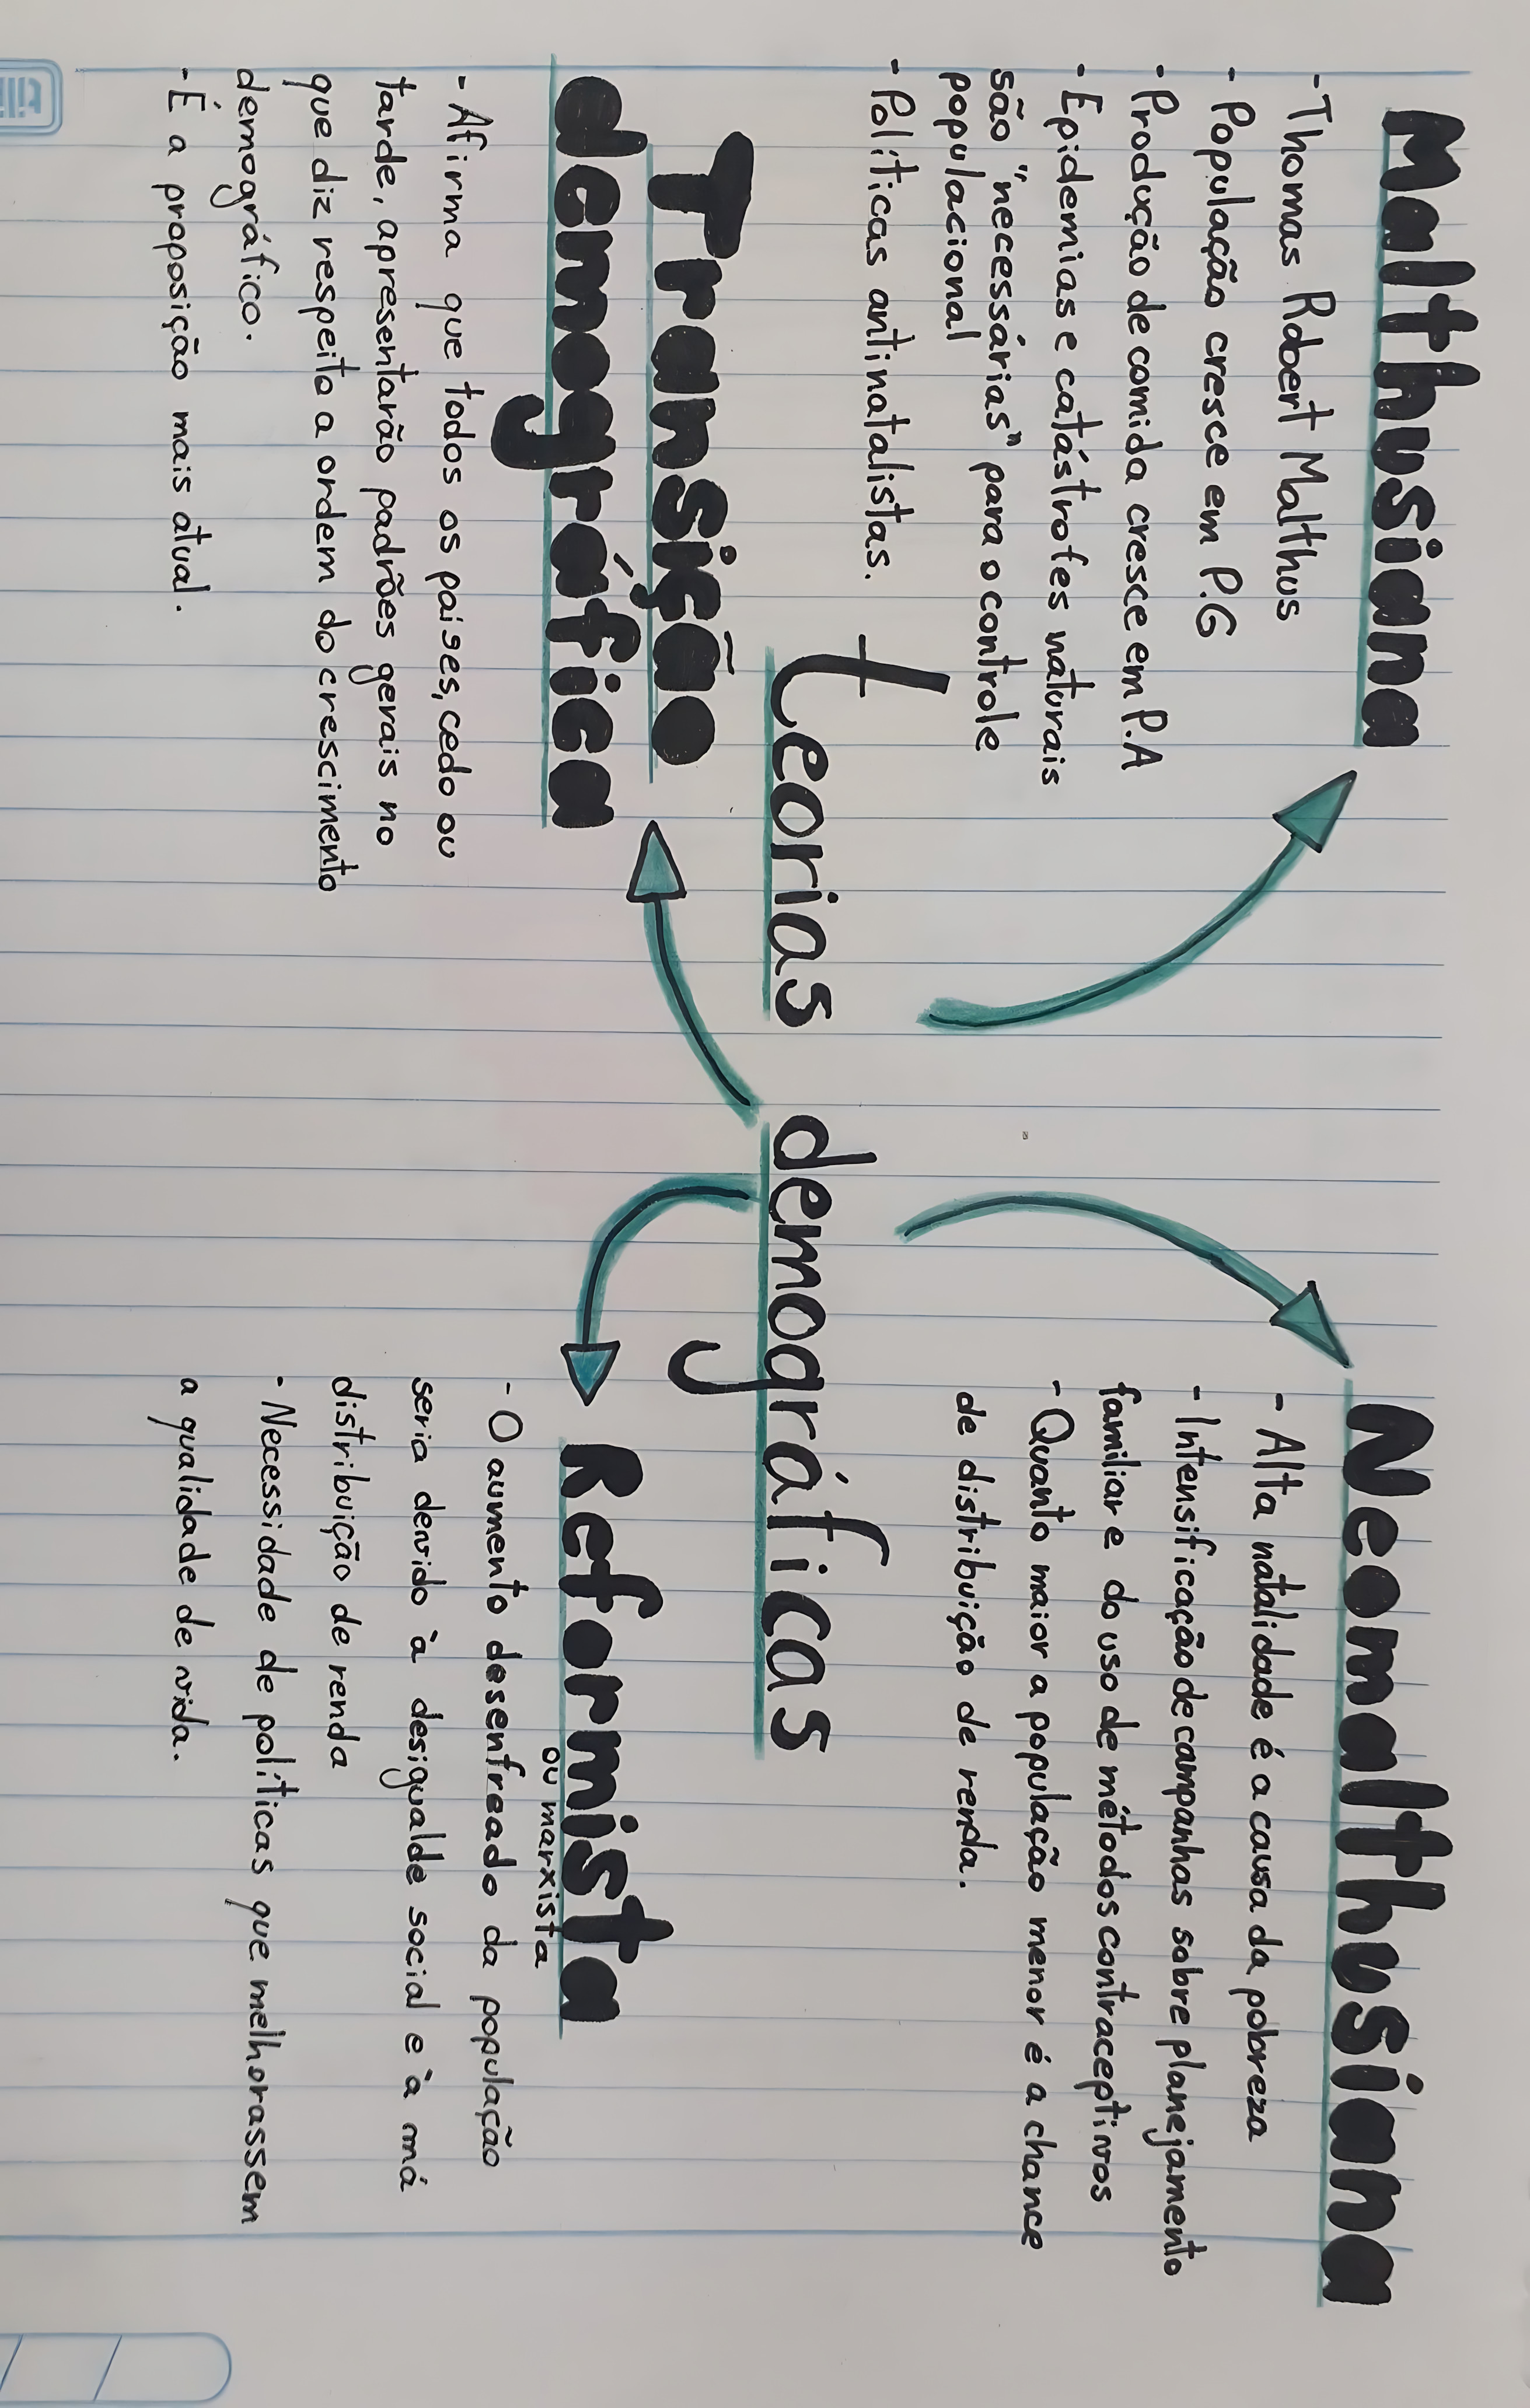 Malthusiana
- Thomas Robert Malthus
- População cresce em P.G
- Produção de comida cresce em P.A
- Epidemias e catástrofes naturais
são "necessárias" para o controle
populacional
- Políticas antinatalistas.
Neomalthusiana
- Alta natalidade é a causa da pobreza
- Intensificação de campanhas sobre planejamento
familiar e do uso de métodos contraceptivos
- Quanto maior a população menor é a chance
de distribuição de renda.
teorias demográficas
Transição
demográfica
- Afirma que todos os países, cedo ou
tarde, apresentarão padrões gerais no
que diz respeito a ordem do crescimento
demográfico.
- É a proposição mais atual.
Reformista
ou marxista
- O aumento desenfreado da população
seria devido à desigualde social e à má
distribuição de renda
- Necessidade de políticas que melhorassem
a qualidade de vida.